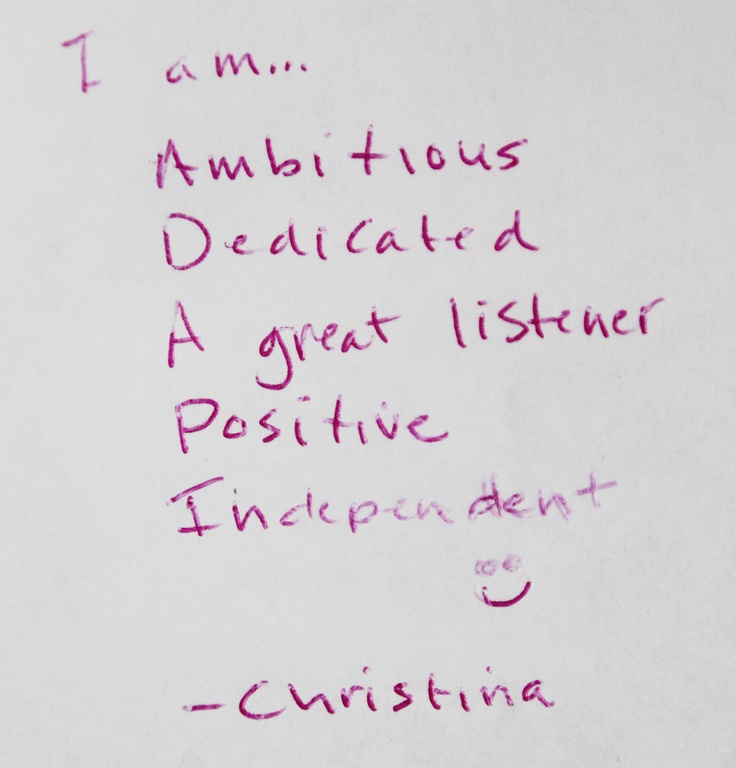 I am...
Ambitious
Dedicated
A great listener
Positive
Independent
-Christina